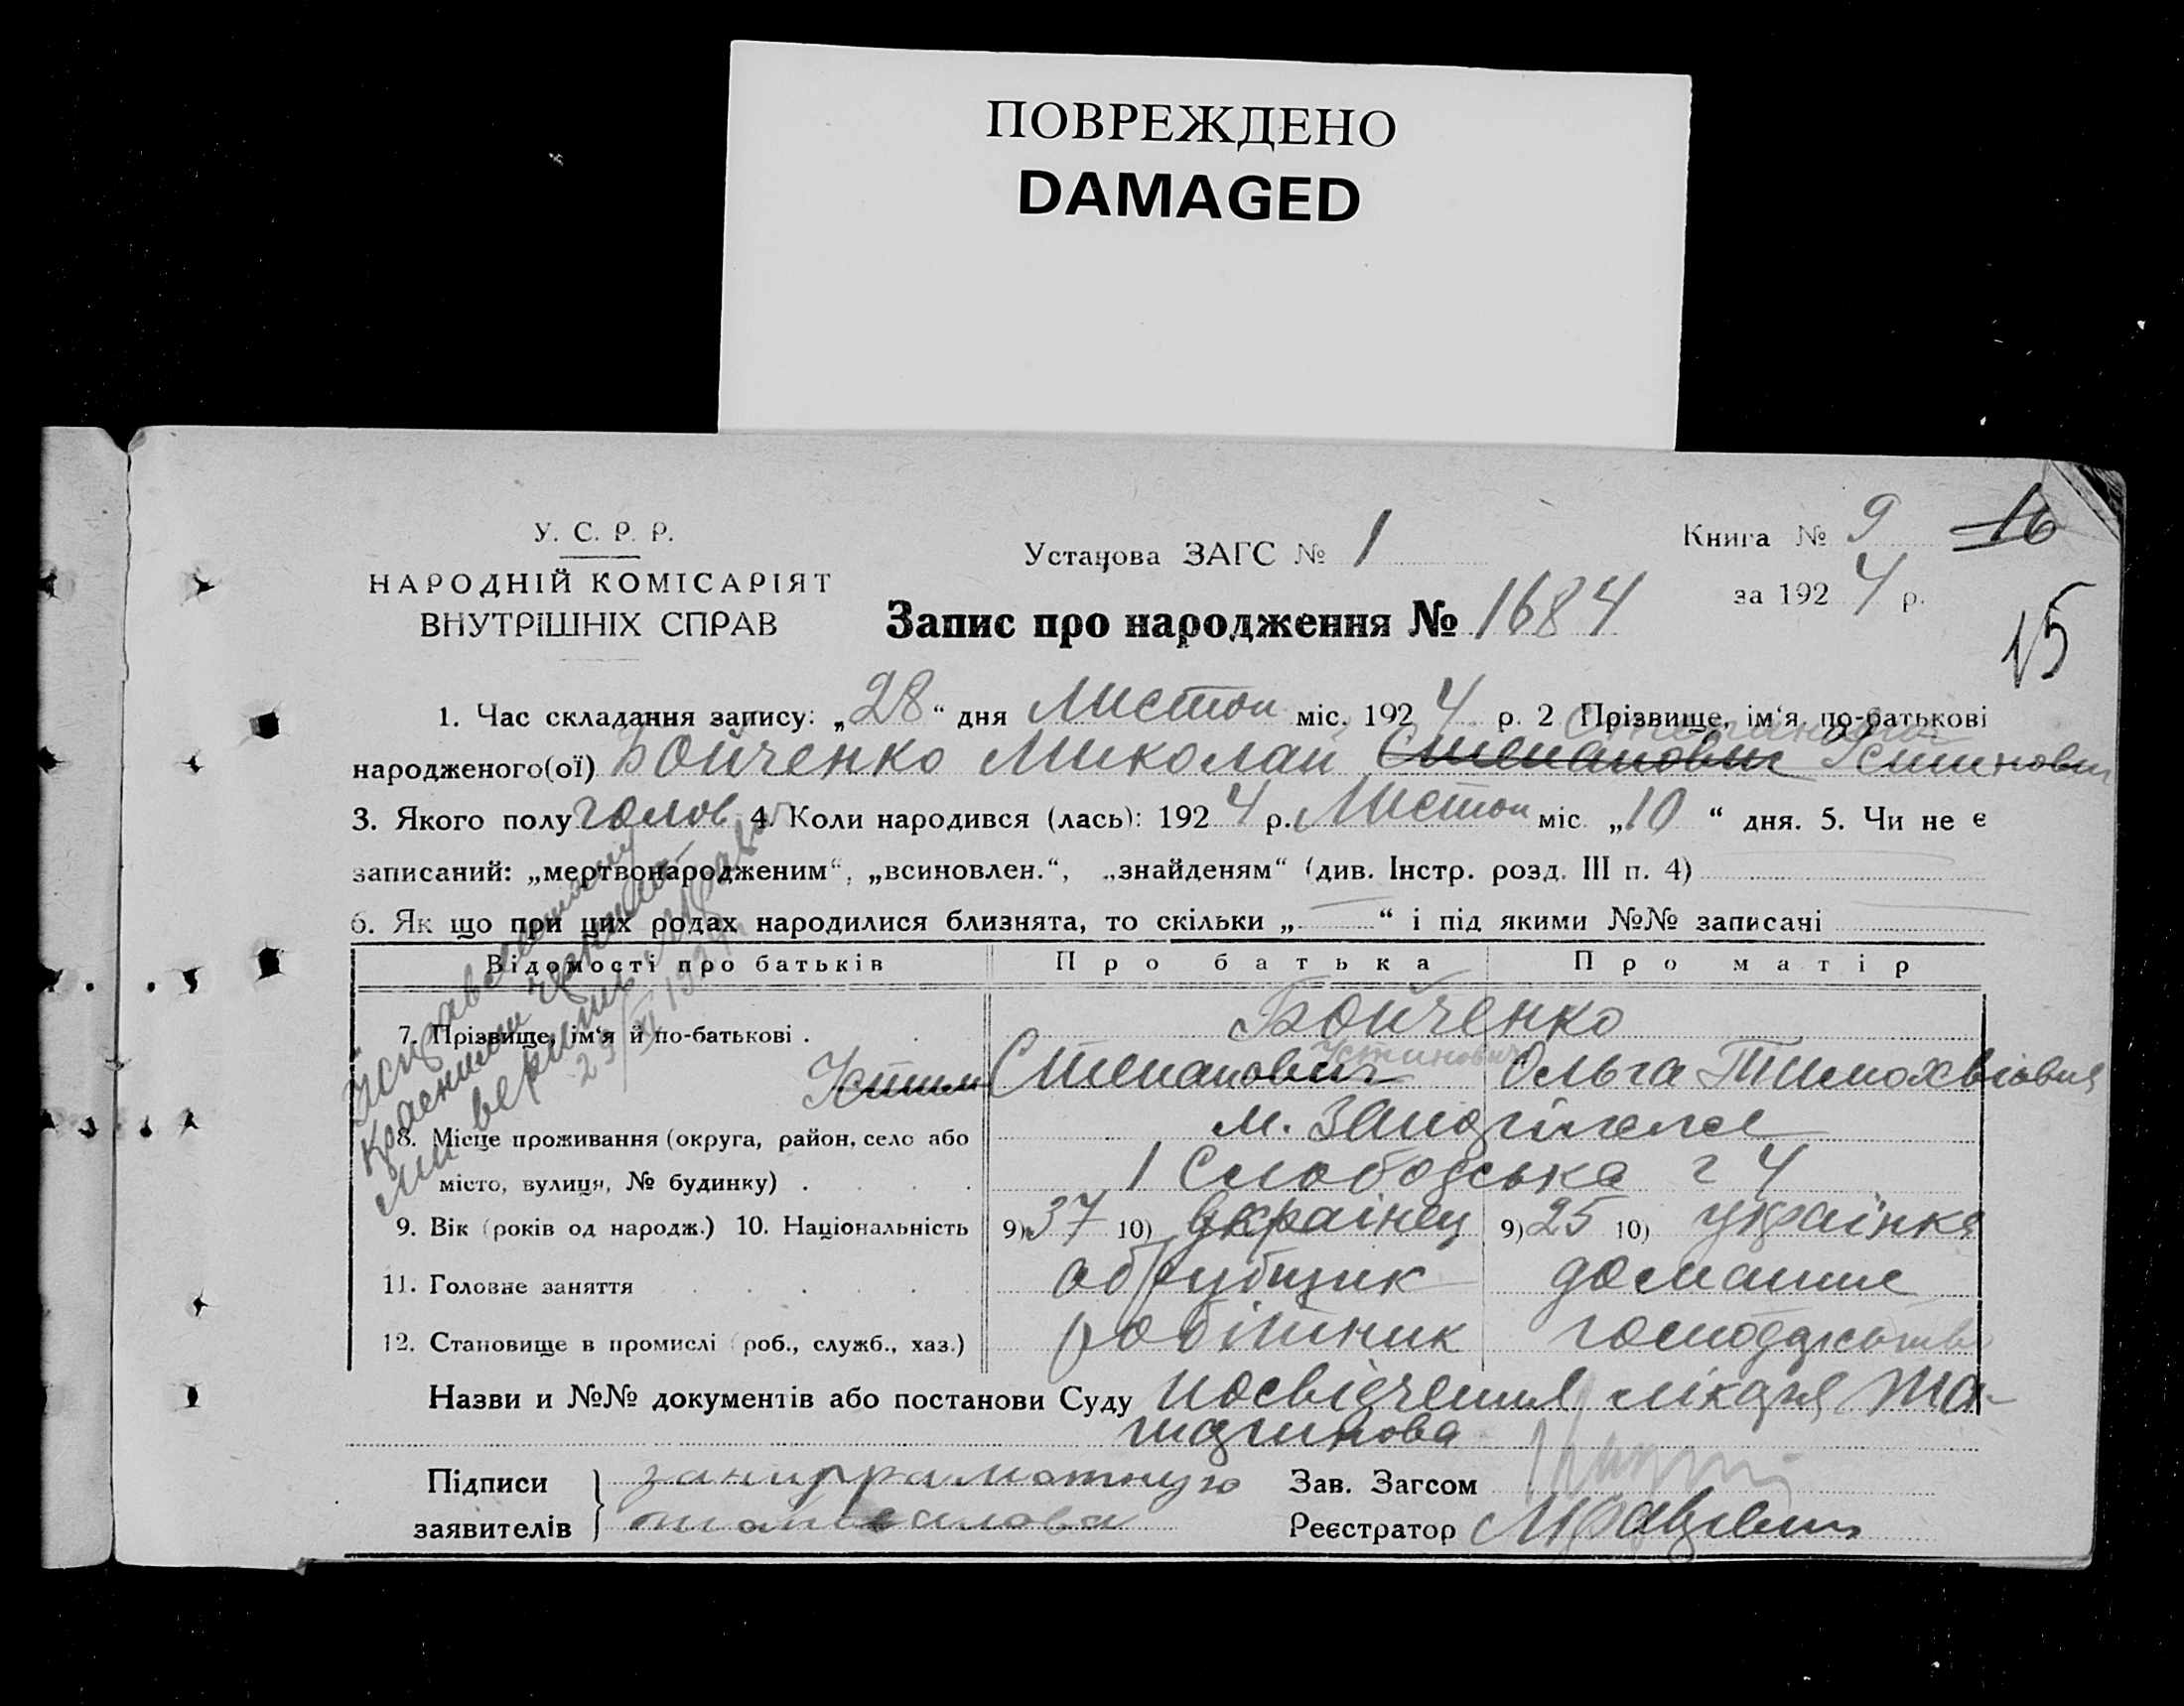 ПОВРЕЖДЕНО
DAMAGED
У. С. Р. Р.
НАРОДНІЙ КОМІСАРІЯТ
ВНУТРІШНІХ СПРАВ
Установа ЗАГС № 1
Книга № 9 16
за 1924 р.
15
Запис про народження № 1684
1. Час складання запису: „28“ дня Листоп міс. 1924 р. 2 Прізвище, ім‘я по-батькові
Степанович
народженого(ої) Бойченко Миколай Степанович Устинович
3. Якого полу голов 4. Коли народився (лась): 1924 р. Листоп міс. „10“ дня. 5. Чи не є
записаний: „мертвонародженим“, „всиновлен.“, „знайденям“ (див. Інстр. розд. III п. 4)
6. Як що при цих родах народилися близнята, то скільки „ “ і під якими №№ записані
Відомості про батьків Про батька Про матір
7. Прізвище, ім‘я й по-батькові . Бойченко
Устинович
Устин Степанович Ольга
8. Місце проживання (округа, район, село або м.
місто, вулиця, № будинку) . 1 Слободська 2 4
9. Вік (років од народж.) 10. Національність 9) 37 10) Українец 9) 25 10) українка
11. Головне заняття обрубщик домашнє
12. Становище в промислі (роб., служб., хаз.) робітник господарство
Назви и №№ документів або постанови Суду посвідчення лікаря
Підписи
заявителів
Зав. Загсом
Реєстратор